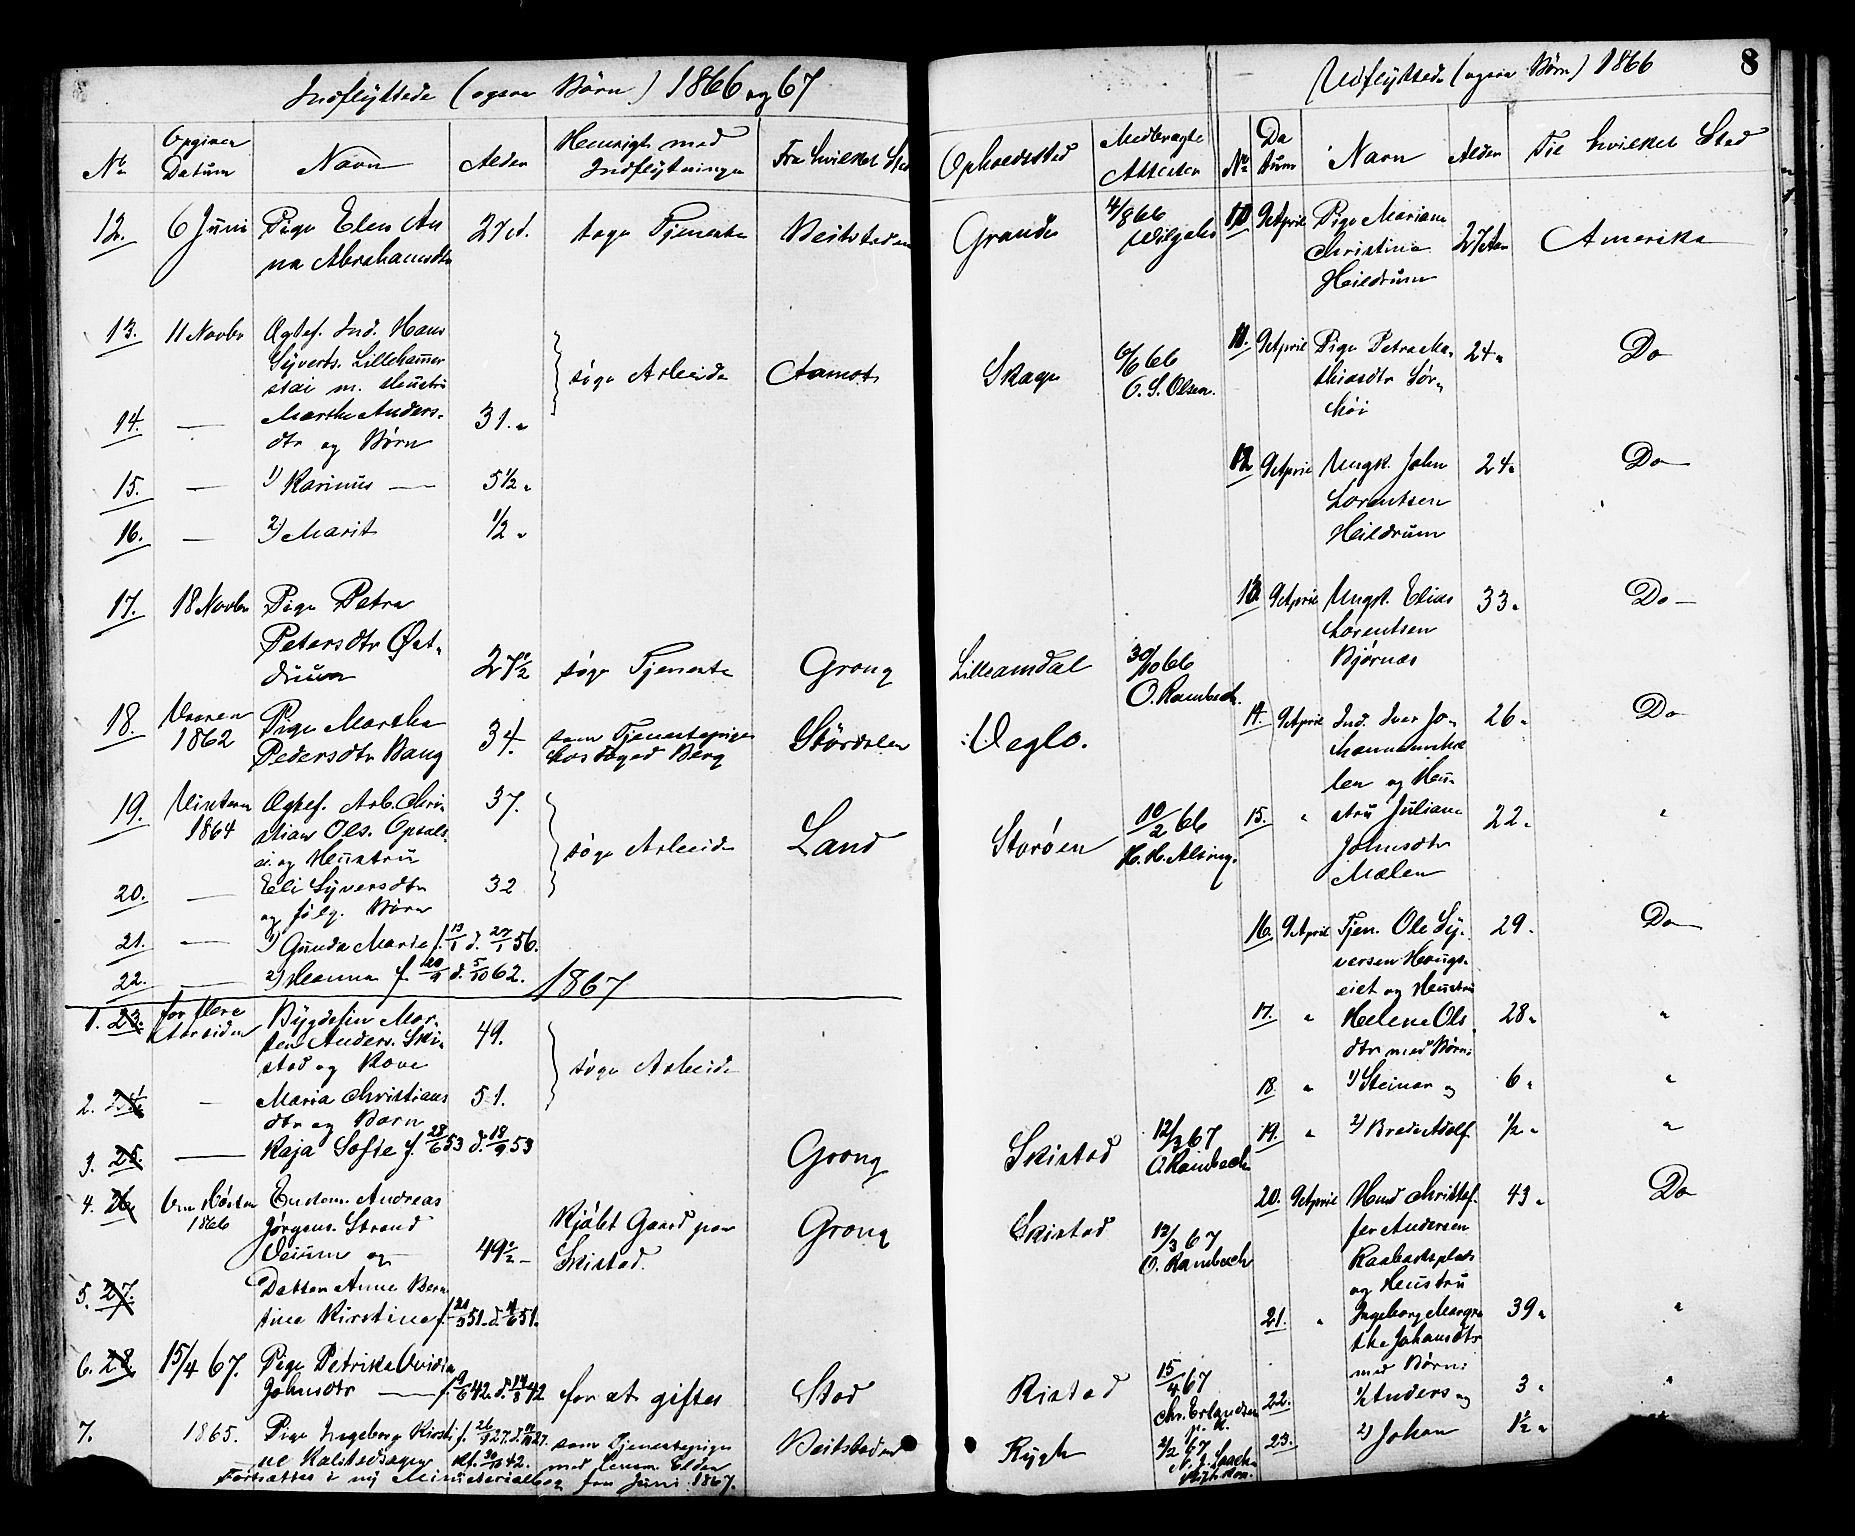 Indflyttede (ogsaa Børn) 1866 og 67
No
Opgiven Datum
Navn
Alder
Hensigt med Indflytningen
Fra hvilket Sted
Opholdssted
Medbragte Attester
12. 6 Juni Pige Elen An
na Abrahamsdtr
27 d. søge Tjeneste Beitstaden Grande 4/8 66
13. 11 Novbr Ægtef. Ind. Hans
Syverts. Lillehammer
m. Hustru
søge Arbeide Aamot Skage 6/6 66
O. S. Olsen.
14. — Marthe Anders-
dtr og Børn 31. "
15. — 1) Karinus — 5 1/2 "
16. — 2) Marit 1/2 "
17. 18 Novbr Pige Petra
Petersdtr Øst-
27 1/2 søge Tjeneste Grong Lilleamdal 30/10 66
O. Rambech.
18. Vaaren
1862 Pige Martha
Pedersdtr Vang 34. som Tjenestepige
hos Foged Berg Størdalen Veglo.
19. Vinteren
1864 Ægtef. Arb. Chri-
stian Ols. Opsals
ei. og Hustru 37. søge Arbeide Land Storøen 10/2 66
20. — Eli Syversdtr
og følg. Børn 32
21. — 1) Gunda Marie f. 13/1 d. 27/1 56.
22. — 2) Hanna f. 20/9 d. 5/10 62.
1867
1. 23. for flere
Aar siden Bygdefin Mor-
ten Anders. Ski-
stad og Kone 49. søge Arbeide
2. 24. — Maria Christians
dtr og Barn 51.
3. 25. — Kaja Sofie f. 28/6 53 d. 18/9 53 Grong Skistad 12/3 67
O. Rambech
4. 26. Om Høsten
1866 Enkem. Andreas
Jørgens. Strand
Veium og — 49 1/2 — Kjøbt Gaard paa
Skistad. Grong Skistad 12/3 67
O. Rambech
5. 27. Datter Anne Bern
tine Kirstine f. 20/5 51. d. 9/6 51.
6. 28. 15/4 67. Pige Petrike Ovidia
Johnsdtr — f. 9/6 42. d. 14/8 42 for at giftes Stod Ristad 15/4 67
Chr. Erlandsen
7. 1865. Pige Ingeborg Kirsti-
ne Kalstadhagen som Tjenestepige
med Beitstaden Rygh 2/2 67
Fortsættes i ny Ministerialbog fra Juni 1867.
Udflyttede (ogsaa Børn) 1866
8
No
Da
tum
Navn
Alder
Til hvilket Sted
10. 9 April Pige Mariane
Christine
Heildrum 27 Aar Amerika
11. 9 April Pige Petra Ma-
thiasdtr Sør-
høi 24 " Do
12. 9 April Ungk. John
Lorentsen
Heildrum 24 " Do
13. 9 April Ungk. Elias
Lorentsen
Bjørnes 33 " Do —
14. 9 April Ind. Iver Jo-
hannes Mæ
len og Hu- 26 " Do
15. " stru Juliane
Johnsdtr
Mælen 22 " "
16. 9 April Tjen. Ole Sy-
versen Haugs-
eiet og Hustru 29 " Do
17. " Helene Ols
dtr med Børn: 28 " "
18. " 1) Steinar og 6 " "
19. " 2) Brede Adolf 1/2 " "
20. 9 April Husd Christof-
fer Andersen
Raabakplads
og Hustru 43 " Do
21. " Ingeborg Margre
the Johansdtr
med Børn: 39 " "
22. 1) Anders og 3 " "
23. 2) Johan 1 1/2 "